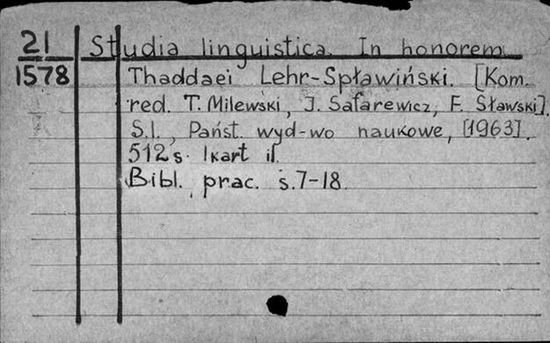 21 Studia linguistica. In honorem
1578 Thaddaei Lehr-Spławiński. [Kom.
red. T. Milewski, J. Safarewicz, F. Sławski].
S.l., Państ. wyd-wo naukowe, [1963].
512 s. 1 kart il.
Bibl. prac. s.7-18.